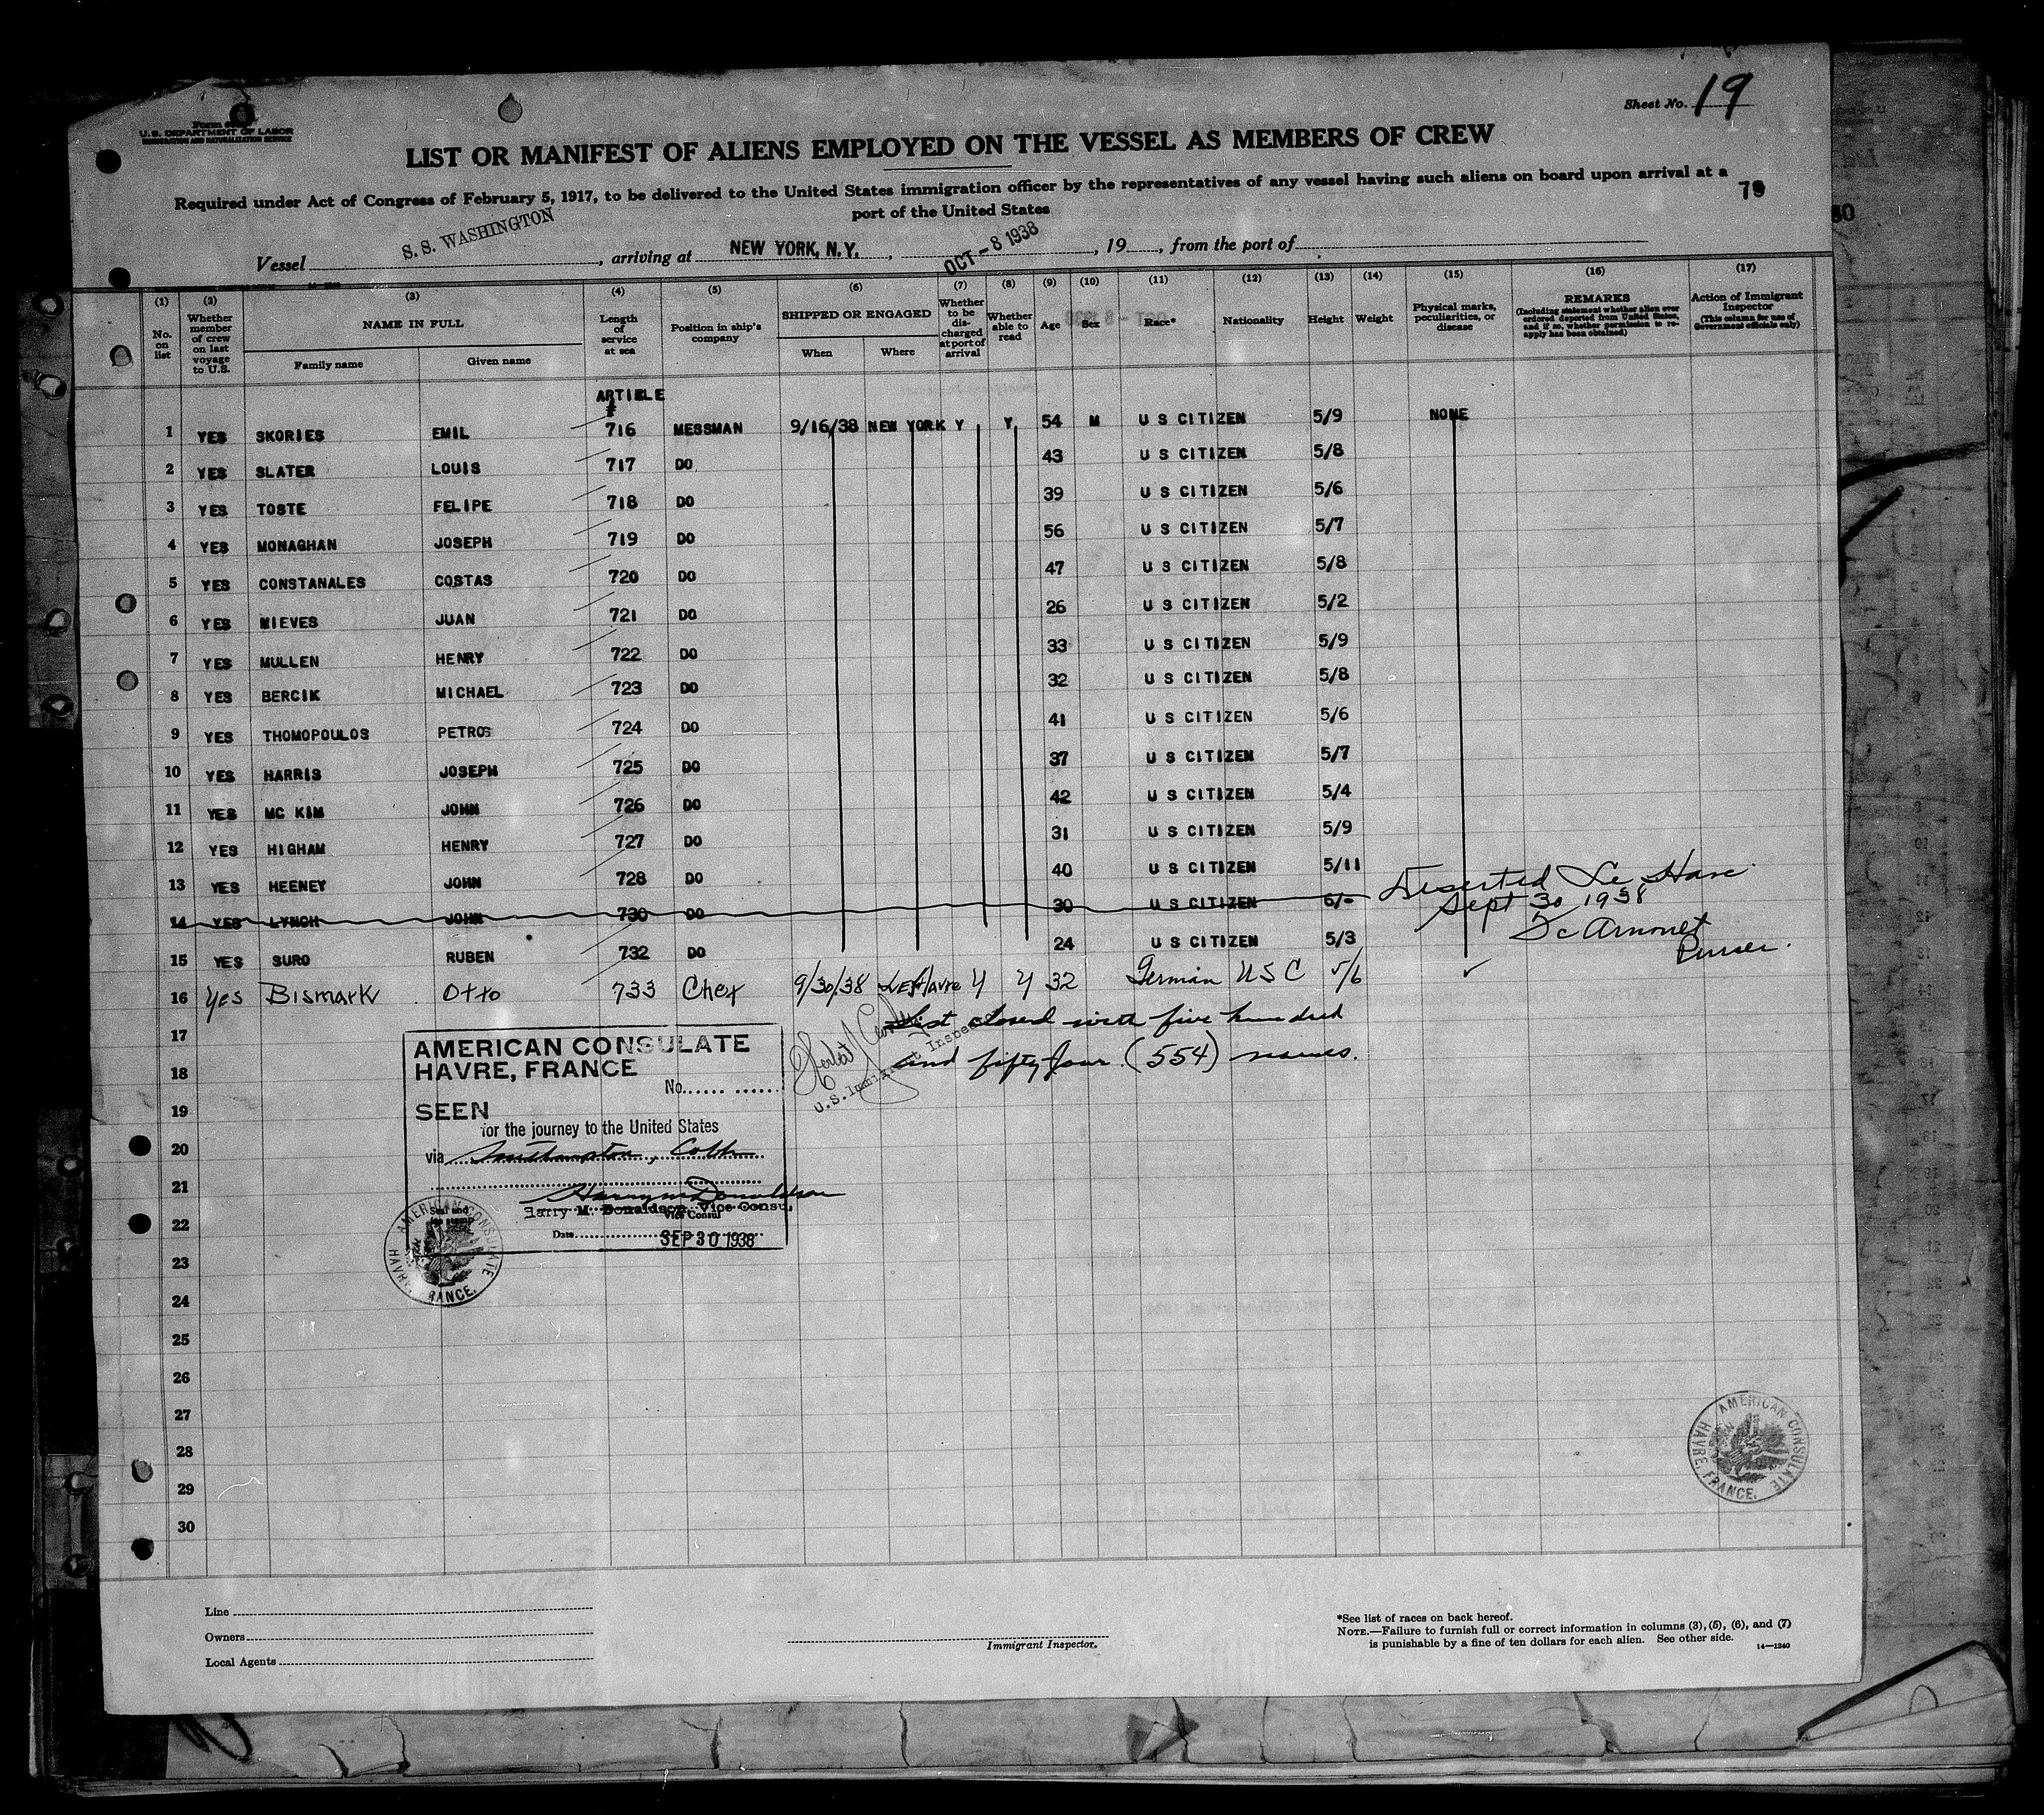 Sheet No. 19
Form
U.S. DEPARTMENT OF LABOR
IMMIGRATION AND NATURALIZATION SERVICE
LIST OR MANIFEST OF ALIENS EMPLOYED ON THE VESSEL AS MEMBERS OF CREW
Required under Act of Congress of February 5, 1917, to be delivered to the United States immigration officer by the representatives of any vessel having such aliens on board upon arrival at a
port of the United States
79
Vessel S. S. WASHINGTON, arriving at NEW YORK, N.Y., OCT - 8 1938, 19, from the port of
(1) No. on list
(2) Whether member of crew on last voyage to U.S.
(3) NAME IN FULL Family name Given name
(4) Length of service at sea
(5) Position in ship's company
(6) SHIPPED OR ENGAGED When Where
(7) Whether to be discharged at port of arrival
(8) Whether able to read
(9) Age
(10) Sex
(11) Race*
(12) Nationality
(13) Height
(14) Weight
(15) Physical marks, peculiarities, or disease
(16) REMARKS (Including statement whether alien ever ordered deported from United States, and if so, whether permission to reapply has been obtained)
(17) Action of Immigrant Inspector (This column for use of Government officials only)
ARTICLE
#
1 YES SKORIES EMIL 716 MESSMAN 9/16/38 NEW YORK Y Y 54 M U S CITIZEN 5/9 NONE
2 YES SLATER LOUIS 717 DO 43 U S CITIZEN 5/8
3 YES TOSTE FELIPE 718 DO 39 U S CITIZEN 5/6
4 YES MONAGHAN JOSEPH 719 DO 56 U S CITIZEN 5/7
5 YES CONSTANALES COSTAS 720 DO 47 U S CITIZEN 5/8
6 YES NIEVES JUAN 721 DO 26 U S CITIZEN 5/2
7 YES MULLEN HENRY 722 DO 33 U S CITIZEN 5/9
8 YES BERCIK MICHAEL 723 DO 32 U S CITIZEN 5/8
9 YES THOMOPOULOS PETROS 724 DO 41 U S CITIZEN 5/6
10 YES HARRIS JOSEPH 725 DO 37 U S CITIZEN 5/7
11 YES MC KIM JOHN 726 DO 42 U S CITIZEN 5/4
12 YES HIGHAM HENRY 727 DO 31 U S CITIZEN 5/9
13 YES HEENEY JOHN 728 DO 40 U S CITIZEN 5/11
14 YES LYNCH JOHN 730 DO 30 U S CITIZEN 6/- Deserted Le Havre
Sept 30 1938
Purser.
15 YES SURO RUBEN 732 DO 24 U S CITIZEN 5/3
16 Yes Bismark Otto 733 Chef 9/30/38 Le Havre Y Y 32 German USC 5/6 ✓
17 List closed with five hundred
18 and fifty four (554) names.
U.S. Immigrant Inspector
19
20
21
22
23
24
25
26
27
28
29
30
AMERICAN CONSULATE
HAVRE, FRANCE
No.
SEEN
for the journey to the United States
via Southampton, Cobh
Harry M Donaldson
Harry M. Donaldson, Vice Consul
Vice Consul
Seal and fee stamp
Date SEP 30 1938
AMERICAN CONSULATE HAVRE, FRANCE.
AMERICAN CONSULATE HAVRE, FRANCE.
Line
Owners
Local Agents
Immigrant Inspector.
*See list of races on back hereof.
NOTE.—Failure to furnish full or correct information in columns (3), (5), (6), and (7)
is punishable by a fine of ten dollars for each alien. See other side. 14—1240